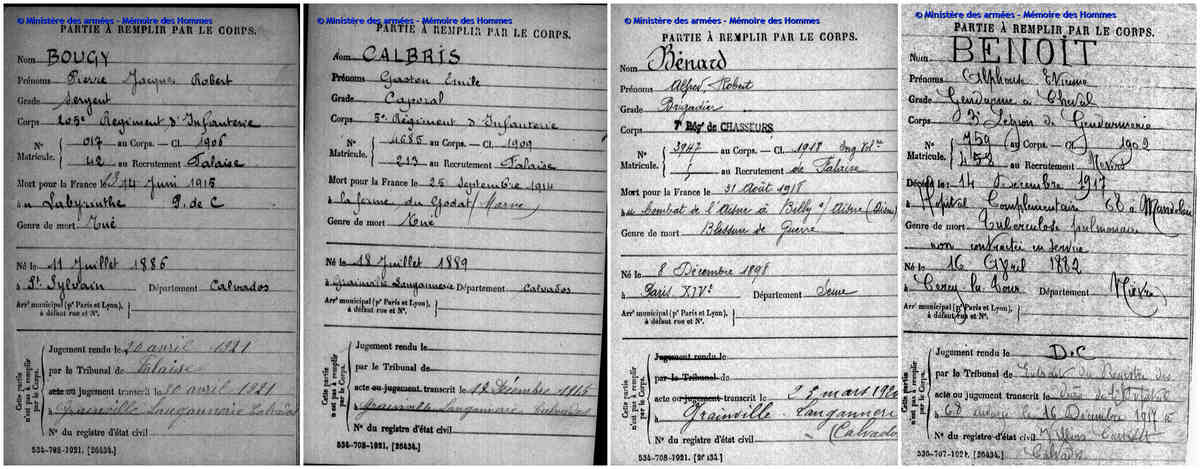 © Ministère des armées - Mémoire des Hommes
PARTIE À REMPLIR PAR LE CORPS.
Nom BOUGY
Prénoms Pierre Jacques Robert
Grade Sergent
Corps 205e Régiment d'Infanterie
N° 017 au Corps. — Cl. 1906
Matricule. 42 au Recrutement Falaise
Mort pour la France le 14 Juin 1915
au Labyrinthe P. de C
Genre de mort Tué
Né le 11 Juillet 1886
à St Sylvain Département Calvados
Arrt municipal (pr Paris et Lyon),
à défaut rue et N°.
Cette partie n'est pas à remplir par le Corps.
Jugement rendu le 20 avril 1921
par le Tribunal de Falaise
acte ou jugement transcrit le 30 avril 1921
à Grainville Langannerie Calvados
N° du registre d'état civil
534-708-1921. [26434.]
© Ministère des armées - Mémoire des Hommes
PARTIE À REMPLIR PAR LE CORPS.
Nom CALBRIS
Prénoms Gaston Emile
Grade Caporal
Corps 5e Régiment d'Infanterie
N° 4685 au Corps. — Cl. 1909
Matricule. 213 au Recrutement Falaise
Mort pour la France le 25 Septembre 1914
à la ferme du Godat (Marne)
Genre de mort Tué
Né le 18 Juillet 1889
à Grainville Langannerie Département Calvados
Arrt municipal (pr Paris et Lyon),
à défaut rue et N°.
Cette partie n'est pas à remplir par le Corps.
Jugement rendu le
par le Tribunal de
acte ou jugement transcrit le 12 Décembre 1915
à Grainville Langannerie Calvados
N° du registre d'état civil
534-708-1921. [26434.]
© Ministère des armées - Mémoire des Hommes
PARTIE À REMPLIR PAR LE CORPS.
Nom Bénard
Prénoms Alfred, Robert
Grade Brigadier
Corps 7e Régt de CHASSEURS
N° 3947 au Corps. — Cl. 1918 Eng. Volre
Matricule. au Recrutement de Falaise
Mort pour la France le 31 Août 1918
au Combat de l'Aisne à Billy s/ Aisne (Aisne)
Genre de mort Blessure de Guerre
Né le 8 Décembre 1898
à Paris XIVe Département Seine
Arrt municipal (pr Paris et Lyon),
à défaut rue et N°.
Cette partie n'est pas à remplir par le Corps.
Jugement rendu le
par le Tribunal de
acte ou jugement transcrit le mars
à Grainville Langannerie
(Calvados
N° du registre d'état civil
534-708-1921.
© Ministère des armées - Mémoire des Hommes
PARTIE À REMPLIR PAR LE CORPS.
Nom BENOÎT
Prénoms Alphonse Etienne
Grade Gendarme à Cheval
Corps 3e Légion de Gendarmerie
N° 759 au Corps. — Cl. 1902
Matricule. 452 au Recrutement Nevers
Décédé le 14 Décembre 1917
à Hôpital Complémentaire 68 à
Genre de mort Tuberculose pulmonaire
non contractée en service
Né le 16 Avril 1882
à Cercy la Tour Département Nièvre
Arrt municipal (pr Paris et Lyon),
à défaut rue et N°.
Cette partie n'est pas à remplir par le Corps.
Jugement rendu le D.C
par le Tribunal de Extrait du Registre des
acte ou jugement transcrit le
à 68 16 Décembre 1917
N° du registre d'état civil
Calvados